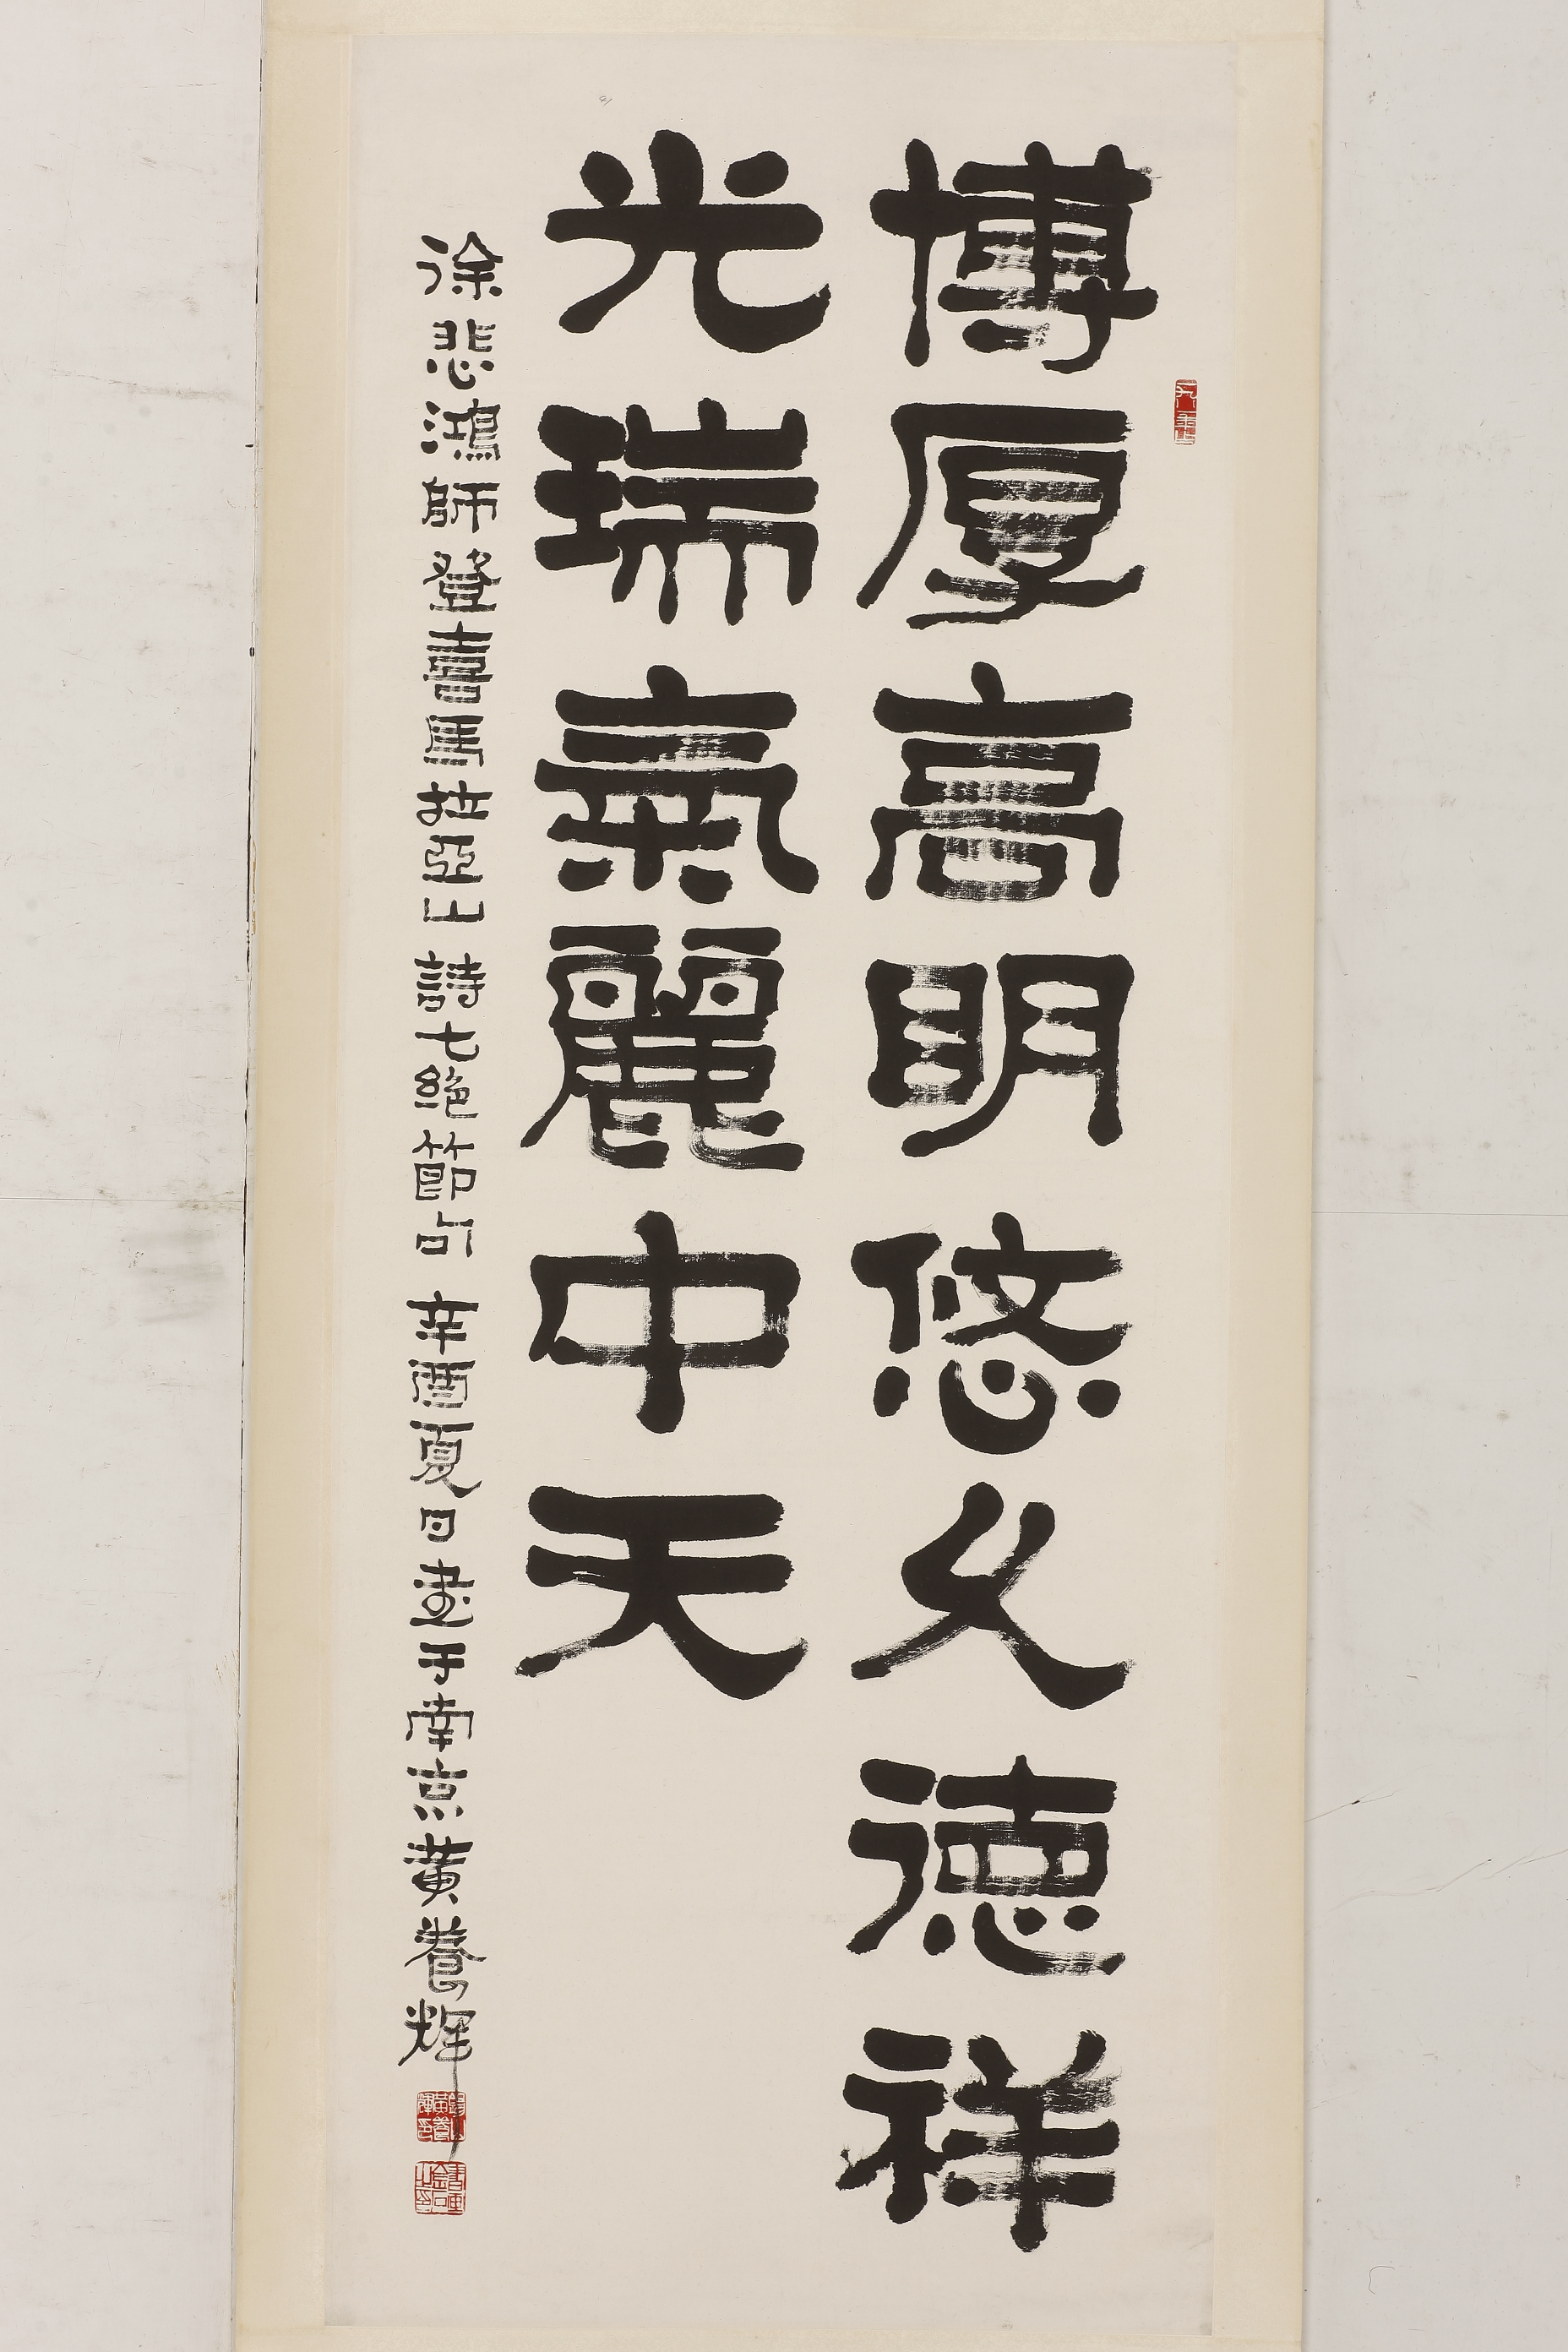 博厚高明悠久德祥
光瑞氣麗中天
徐悲鴻師登喜馬拉亞山詩七絕節句 辛酉夏日書于南京黃養輝